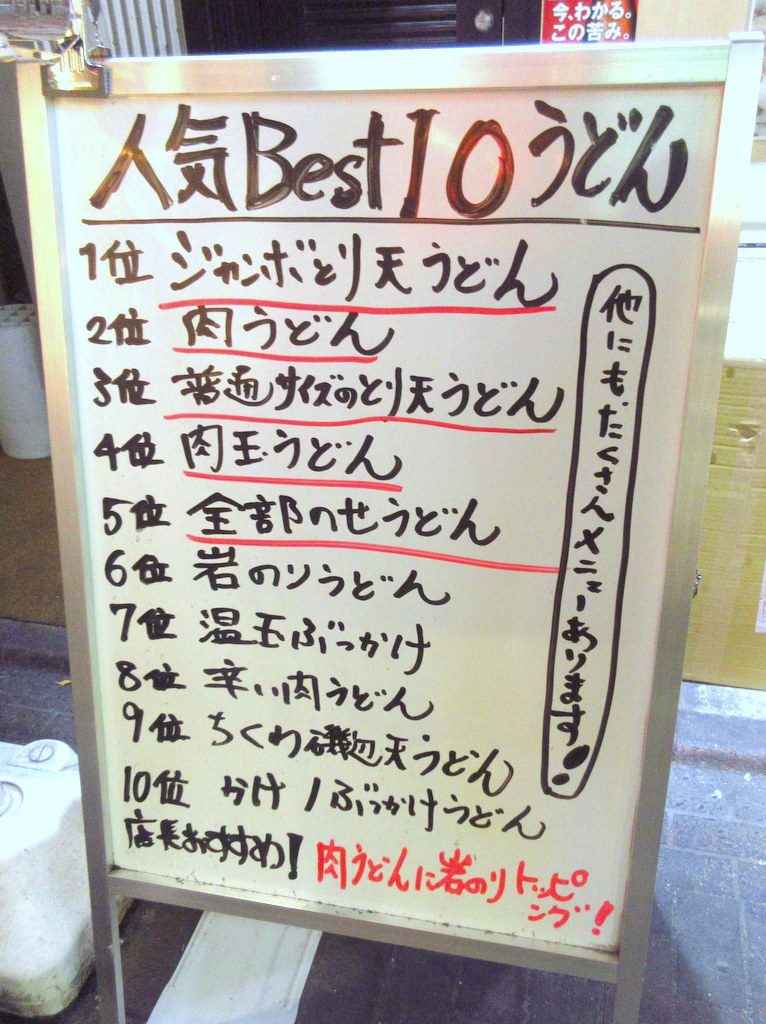 今、わかる。
この苦み。
人気Best10うどん
1位 ジャンボとり天うどん
2位 肉うどん
3位 普通サイズのとり天うどん
4位 肉玉うどん
5位 全部のせうどん
6位 岩のりうどん
7位 温玉ぶっかけ
8位 辛い肉うどん
9位 ちくわ磯辺天うどん
10位 かけ/ぶっかけうどん
他にもたくさんメニューあります!
店長おすすめ!
肉うどんに岩のりトッピ
ング!